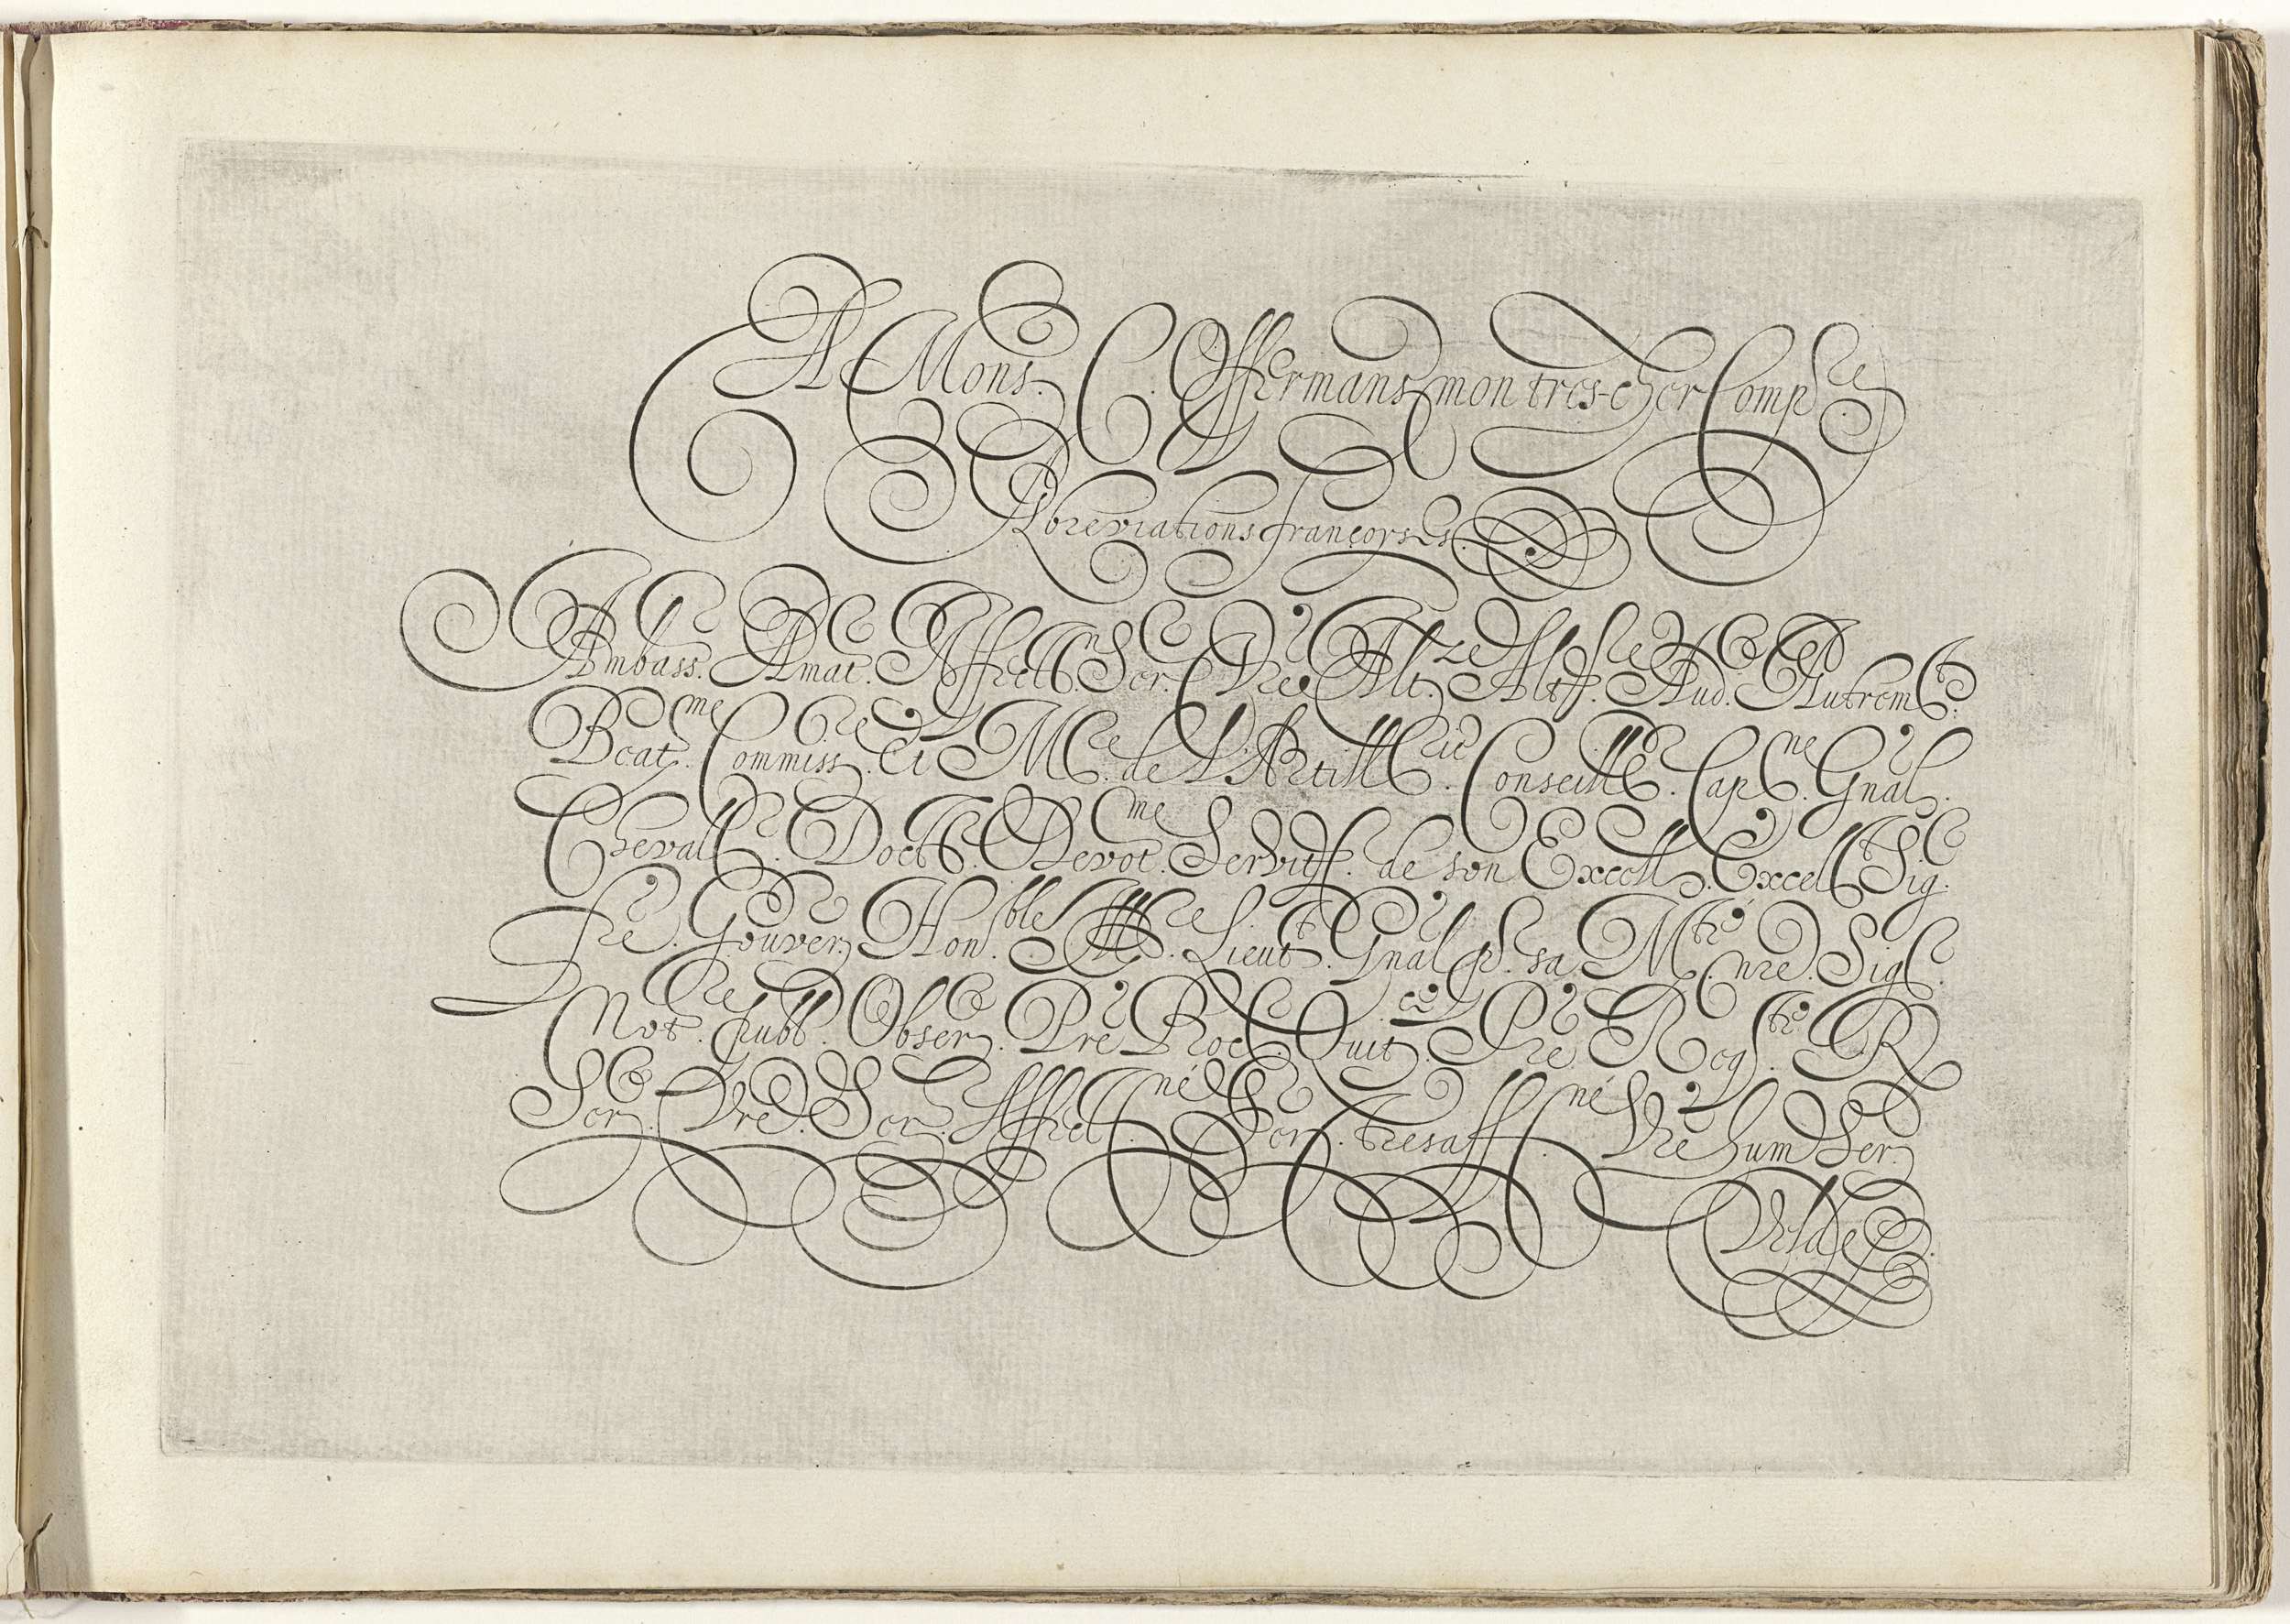 A Mons. C. Offermans mon tres-cher Comp.re
Abreviations françoyses.
Ambass.r Amat.r Affect. Ser. Vre Alt.ze Altess. Aud.re Autrem.t
Beat.me Commiss.re Et M.re de L'Artill.rie Conseill.r Cap.ne Gnal.
Chevall.r Doct.r Devot.me Servit.r de son Excell. Excell. Sig.
fre. Gouver.r Hon.ble Ill.re Lieut.t Gnal p. sa M.té nre. Sig.r
Not.re publ. Obser. Pre Proc. Quit.ce Pre Roy.té R
Ser. Vre. Ser. Affect.né Ser. tresaff.né Vre hum. Ser.